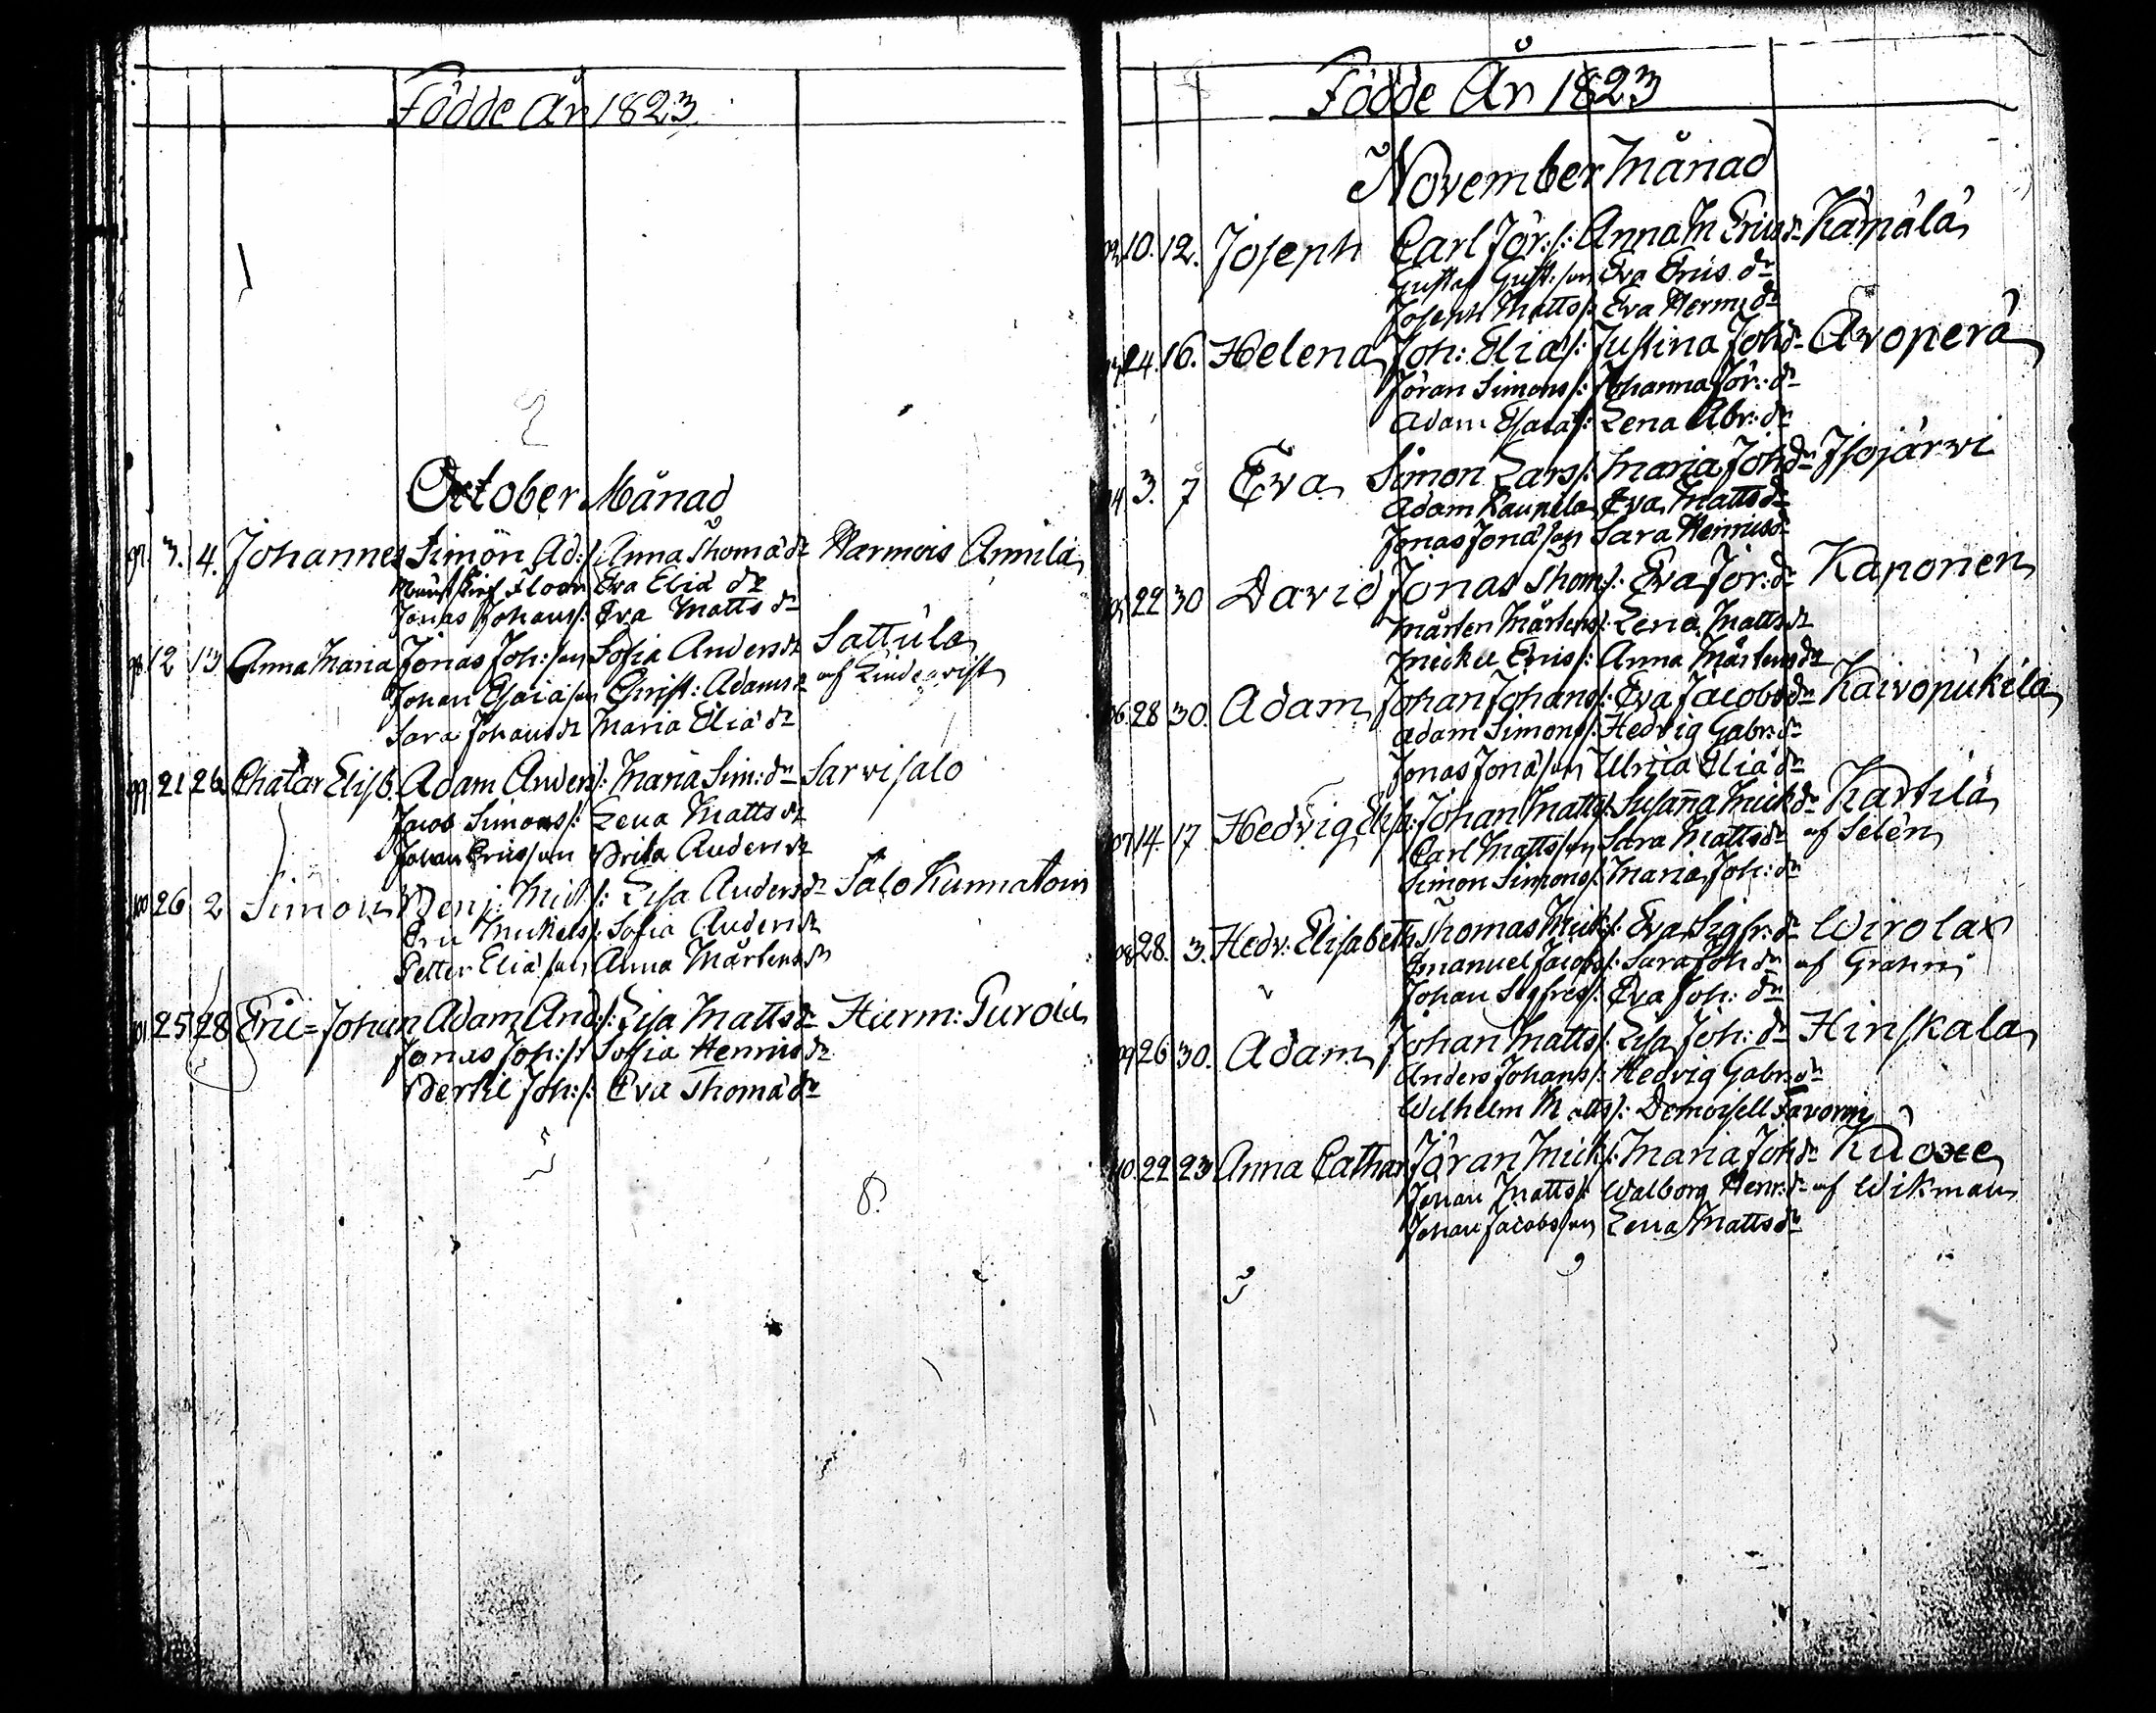 Födde År 1823.
October Månad
97. 3. 4. Johannes Simon Ad:s: Anna Thoma dr Harmois Annila
Floor Eva Elia dr
Jonas Johans: Eva Matts dr
98. 12 13 Anna Maria Jonas Joh:son Sofia Anders dr Sattula
Johan Esaiason Christ: Adams dr af Lindqvist
Sara Johans dr Maria Elia dr
99 21 26 Chatar Elisb. Adam Anders: Maria Sim: dr Sarvisalo
Jacob Simons: Lena Matts dr
Johan Ericsson Brita Anders dr
100 26 2 Simon Benj: Mick s: Lisa Anders dr Salo Kunnatoin
Eric Mickels: Sofia Anders dr
Petter Elia son Anna Mårtens dr
101 25 28 Eric=Johan Adam And:s: Lisa Matts dr Harm:
Jonas Joh:s: Sofia Henrics dr
Bertil Joh:s: Eva Thoma dr
Födde År 1823
November Månad
02 10. 12. Joseph Carl Jör:s: Anna M Erics dr Kämälä
Gustaf Gust:son Eva Erics dr
Joseph Matts: Eva Herm: dr
24. 16. Helena Joh: Elia s: Justina Joh dr Avoperä
Jöran Simons: Johanna Jör: dr
Adam Esaia s: Lena Abr: dr
04. 3. 7 Eva Simon Lars: Maria Joh dr Isojärvi
Adam Kaupila Eva Matts dr
Jonas Jona son Sara Henrics dr
05 22 30 David Jonas Thom s: Eva Jör: dr Kaponen
Mårten Mårtens: Lena Matts dr
Mickel Erics: Anna Mårtens dr
06. 28 30. Adam Johan Johans: Eva Jacobs dr Kaivopukila
Adam Simons: Hedvig Gabr: dr
Jonas Jona son Ulrica Elia dr
07 14. 17 Hedvig Elisb: Johan Matts: Susanna Mick dr Kartila
Carl Matts son Sara Matts dr af Selén
Simon Simons: Maria Joh: dr
08 28. 3. Hedv: Elisabeth Thomas Mick s: Eva Sigfr: dr Wirolax
Emanuel Jacobs: Sara Joh dr af Grahni
Johan Sigfreds: Eva Joh: dr
09 26 30. Adam Johan Matts: Lisa Joh: dr Hinskala
Anders Johans: Hedvig Gabr: dr
Wilhelm Matts: Demoisell Favorin
10. 22 23 Anna Cathar Jöran Mick s: Maria Joh dr Kuoxe
Johan Matts: Walborg Henr: dr af Wikman
Johan Jacobs son Lena Matts dr